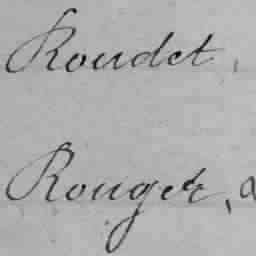 Roudet,
Rouger, a